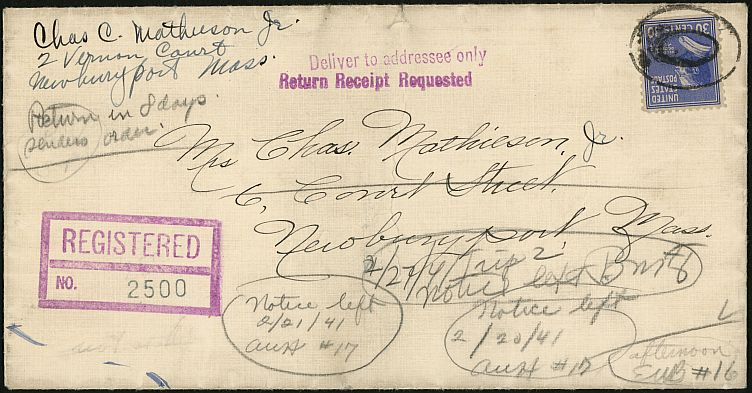 Chas C. Mathieson Jr.
2 Vernon Court
Newburyport Mass.
Return in 8 days.
senders order.
Deliver to addressee only
Return Receipt Requested
30 CENTS 30
UNITED
STATES
POSTAGE
Mrs Chas. Mathieson, Jr.
6, Court Street.
Newburyport, Mass.
REGISTERED
NO. 2500
2/27/41 Trip 2
Notice left
Notice left
2/21/41
#17
Notice left
2/20/41
afternoon
#16